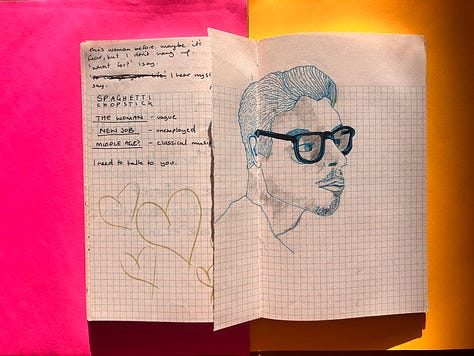 this woman before. maybe it's
fear, but I don't hang up.
'what for?' I say.
I hear mys
say.
SPAGHETTI
CHOPSTICK
THE WOMAN - vague
NEW JOB - unemployed
MIDDLE AGE? - classical music
I need to talk to you.